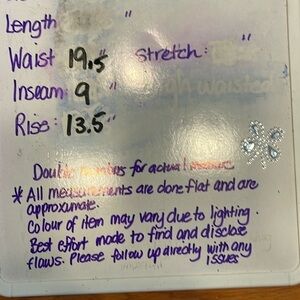 Length "
Waist 19.5" Stretch: "
Inseam: 9 "
Rise: 13.5"
Double for actual
* All measurements are done flat and are
approximate.
Colour of item may vary due to lighting.
Best effort made to find and disclose
flaws. Please follow up directly with any
issues